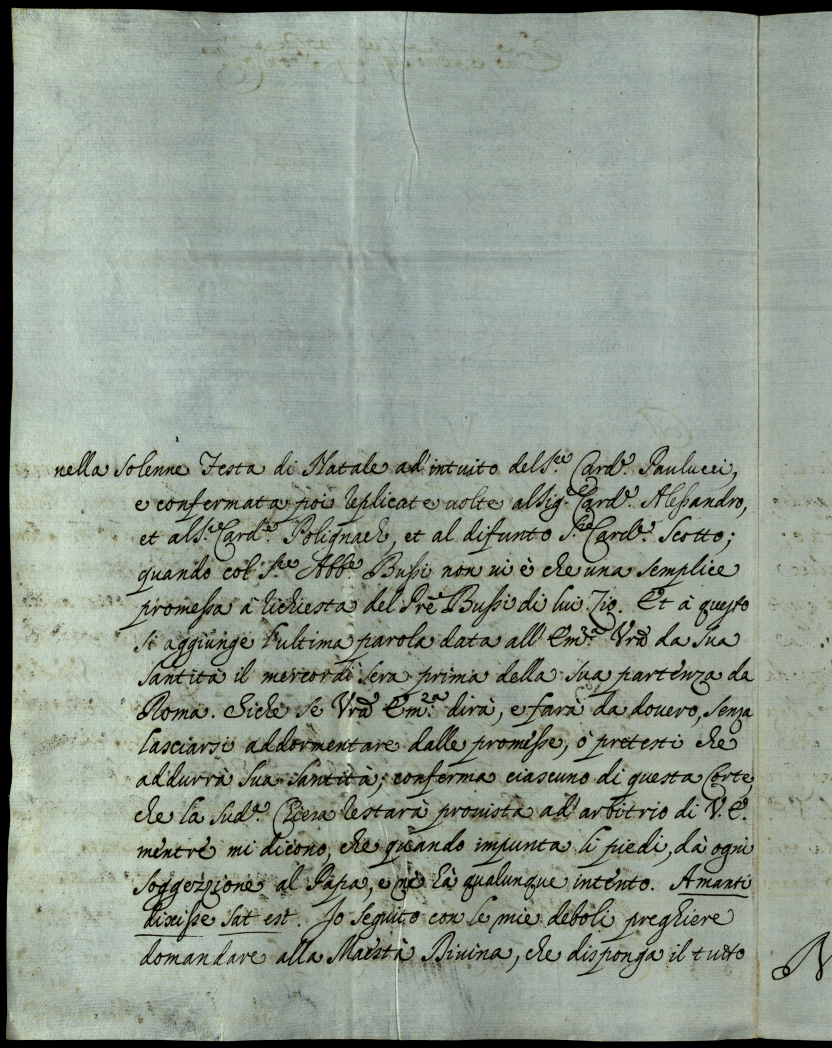 nella Solenne Festa di Natale ad'intuito del S.re Card.e Paulucci,
e confermata poi replicate uolte al Sig.re Card.e Alessandro,
et al S.r Card.e Polignach, et al difunto S.re Card.e Scotto;
quando col S.re Abb.e Bussi non ui è che una semplice
promessa à richiesta del Prē Bussi di lui Zio. Et à questo
si aggiunge l'ultima parola data all'Em.za Vrā da Sua
Santità il mercordi sera prima della sua partenza da
Roma. Siche se Vrā Em.za dirà, e farà da douero, senza
lasciarsi addormentare dalle promesse, ò pretesti che
addurrà Sua Santità; conferma ciascuno di questa Corte,
che la sud.a Chiesa restarà prouista ad'arbitrio di V. E.
mentre mi dicono, che quando impunta li piedi, dà ogni
soggezzione al Papa, e ne hà qualunque intento. Amanti
dixisse sat est. Io seguito con le mie deboli preghiere
domandare alla Maestà Diuina, che disponga il tutto
N